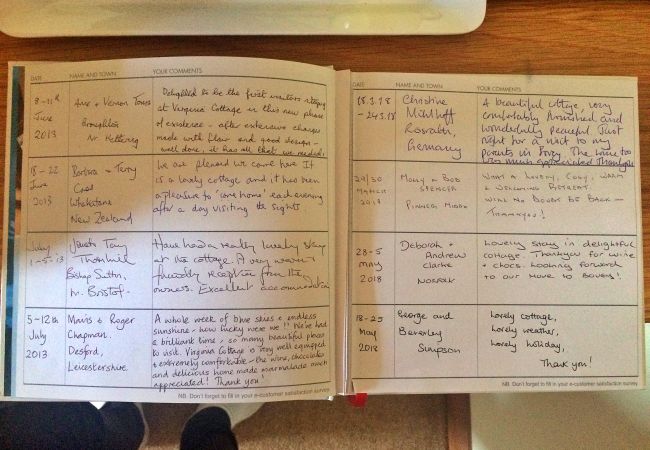 DATE NAME AND TOWN YOUR COMMENTS
8-11th June 2013
Ann + Vernon
Broughton
Nr Kettering
Delighted to be the first visitors staying
at Virginia Cottage in this new phase
of existence - after extensive changes
made with flair and good design -
well done, it has all that we needed.
18-22 June 2013
Barbara + Terry
Whakatane
New Zealand
We are pleased we came here. It
is a lovely cottage and it has been
a pleasure to 'come home' each evening
after a day visiting the sights
July 1-5-13
Thornhill
Bishop Sutton,
Nr. Bristol.
Have had a really lovely stay
at the cottage. A very warm +
friendly reception from the
owners. Excellent accommodation
5-12th July 2013
Mavis & Roger
Chapman.
Desford,
Leicestershire.
A whole week of blue skies & endless
sunshine - how lucky were we!! We've had
a brilliant time, so many beautiful places
to visit. Virginia Cottage is very well equipped
& extremely comfortable - the wine, chocolates
and delicious home made marmalade much
appreciated! Thank you
NB. Don't forget to fill in your e-customer satisfaction survey
DATE NAME AND TOWN YOUR COMMENTS
18.3.18 - 24.3.18
Christine
Rösrath,
Germany
A beautiful cottage, very
comfortably furnished and
wonderfully peaceful. Just
right for a visit to my
parents in Bovey. The wine too
was much appreciated. Thankyou
MARCH 2018
MOLLY + BOB
SPENCER
PINNER MIDDX
WHAT A LOVELY, COSY, WARM
& WELCOMING RETREAT.
WILL NO DOUBT BE BACK -
THANKYOU!
28-5 May 2018
Deborah +
Andrew
Clarke
Norfolk
Lovely stay in delightful
cottage. Thankyou for wine
+ chocs. Looking forward
to our move to Bovey!
18-25 May 2018
George and
Beverley
Simpson
Lovely cottage,
Lovely weather,
Lovely holiday,
Thank you!
NB. Don't forget to fill in your e-customer satisfaction survey